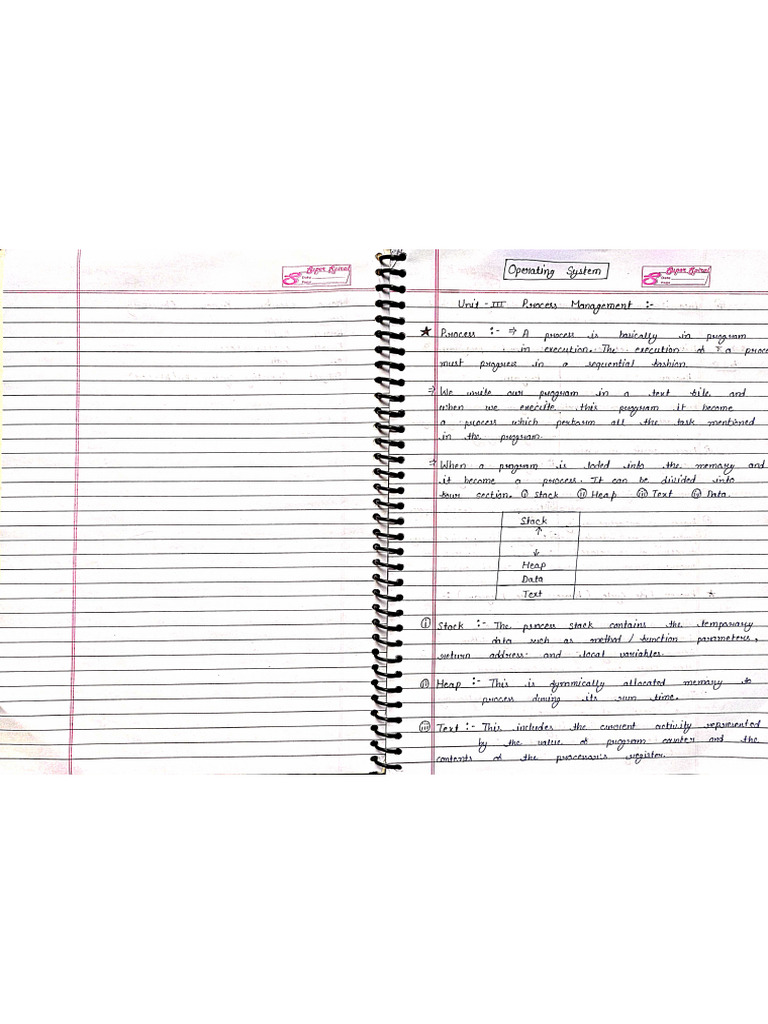 Super Spiral
Date
Page
Operating System
Super Spiral
Date
Page
Unit - III Process Management :-
★ Process :- ⇒ A process is basically in program
in execution. The execution of a proce
must progress in a sequential fashion.
⇒ We write our program in a text file and
when we execute this program it become
a process which perform all the task mentioned
in the program.
⇒ When a program is loded into the memory and
it become a process. It can be divided into
four section. (i) Stack (ii) Heap (iii) Text (iv) Data.
Stack
↑
↓
Heap
Data
Text
(i) Stack :- The process stack contains the temporary
data such as method / function parameters,
return address and local variables.
(ii) Heap :- This is dynmically allocated memory to
process during its run time.
(iii) Text :- This includes the current activity represented
by the value of program counter and the
contents of the processor's register.